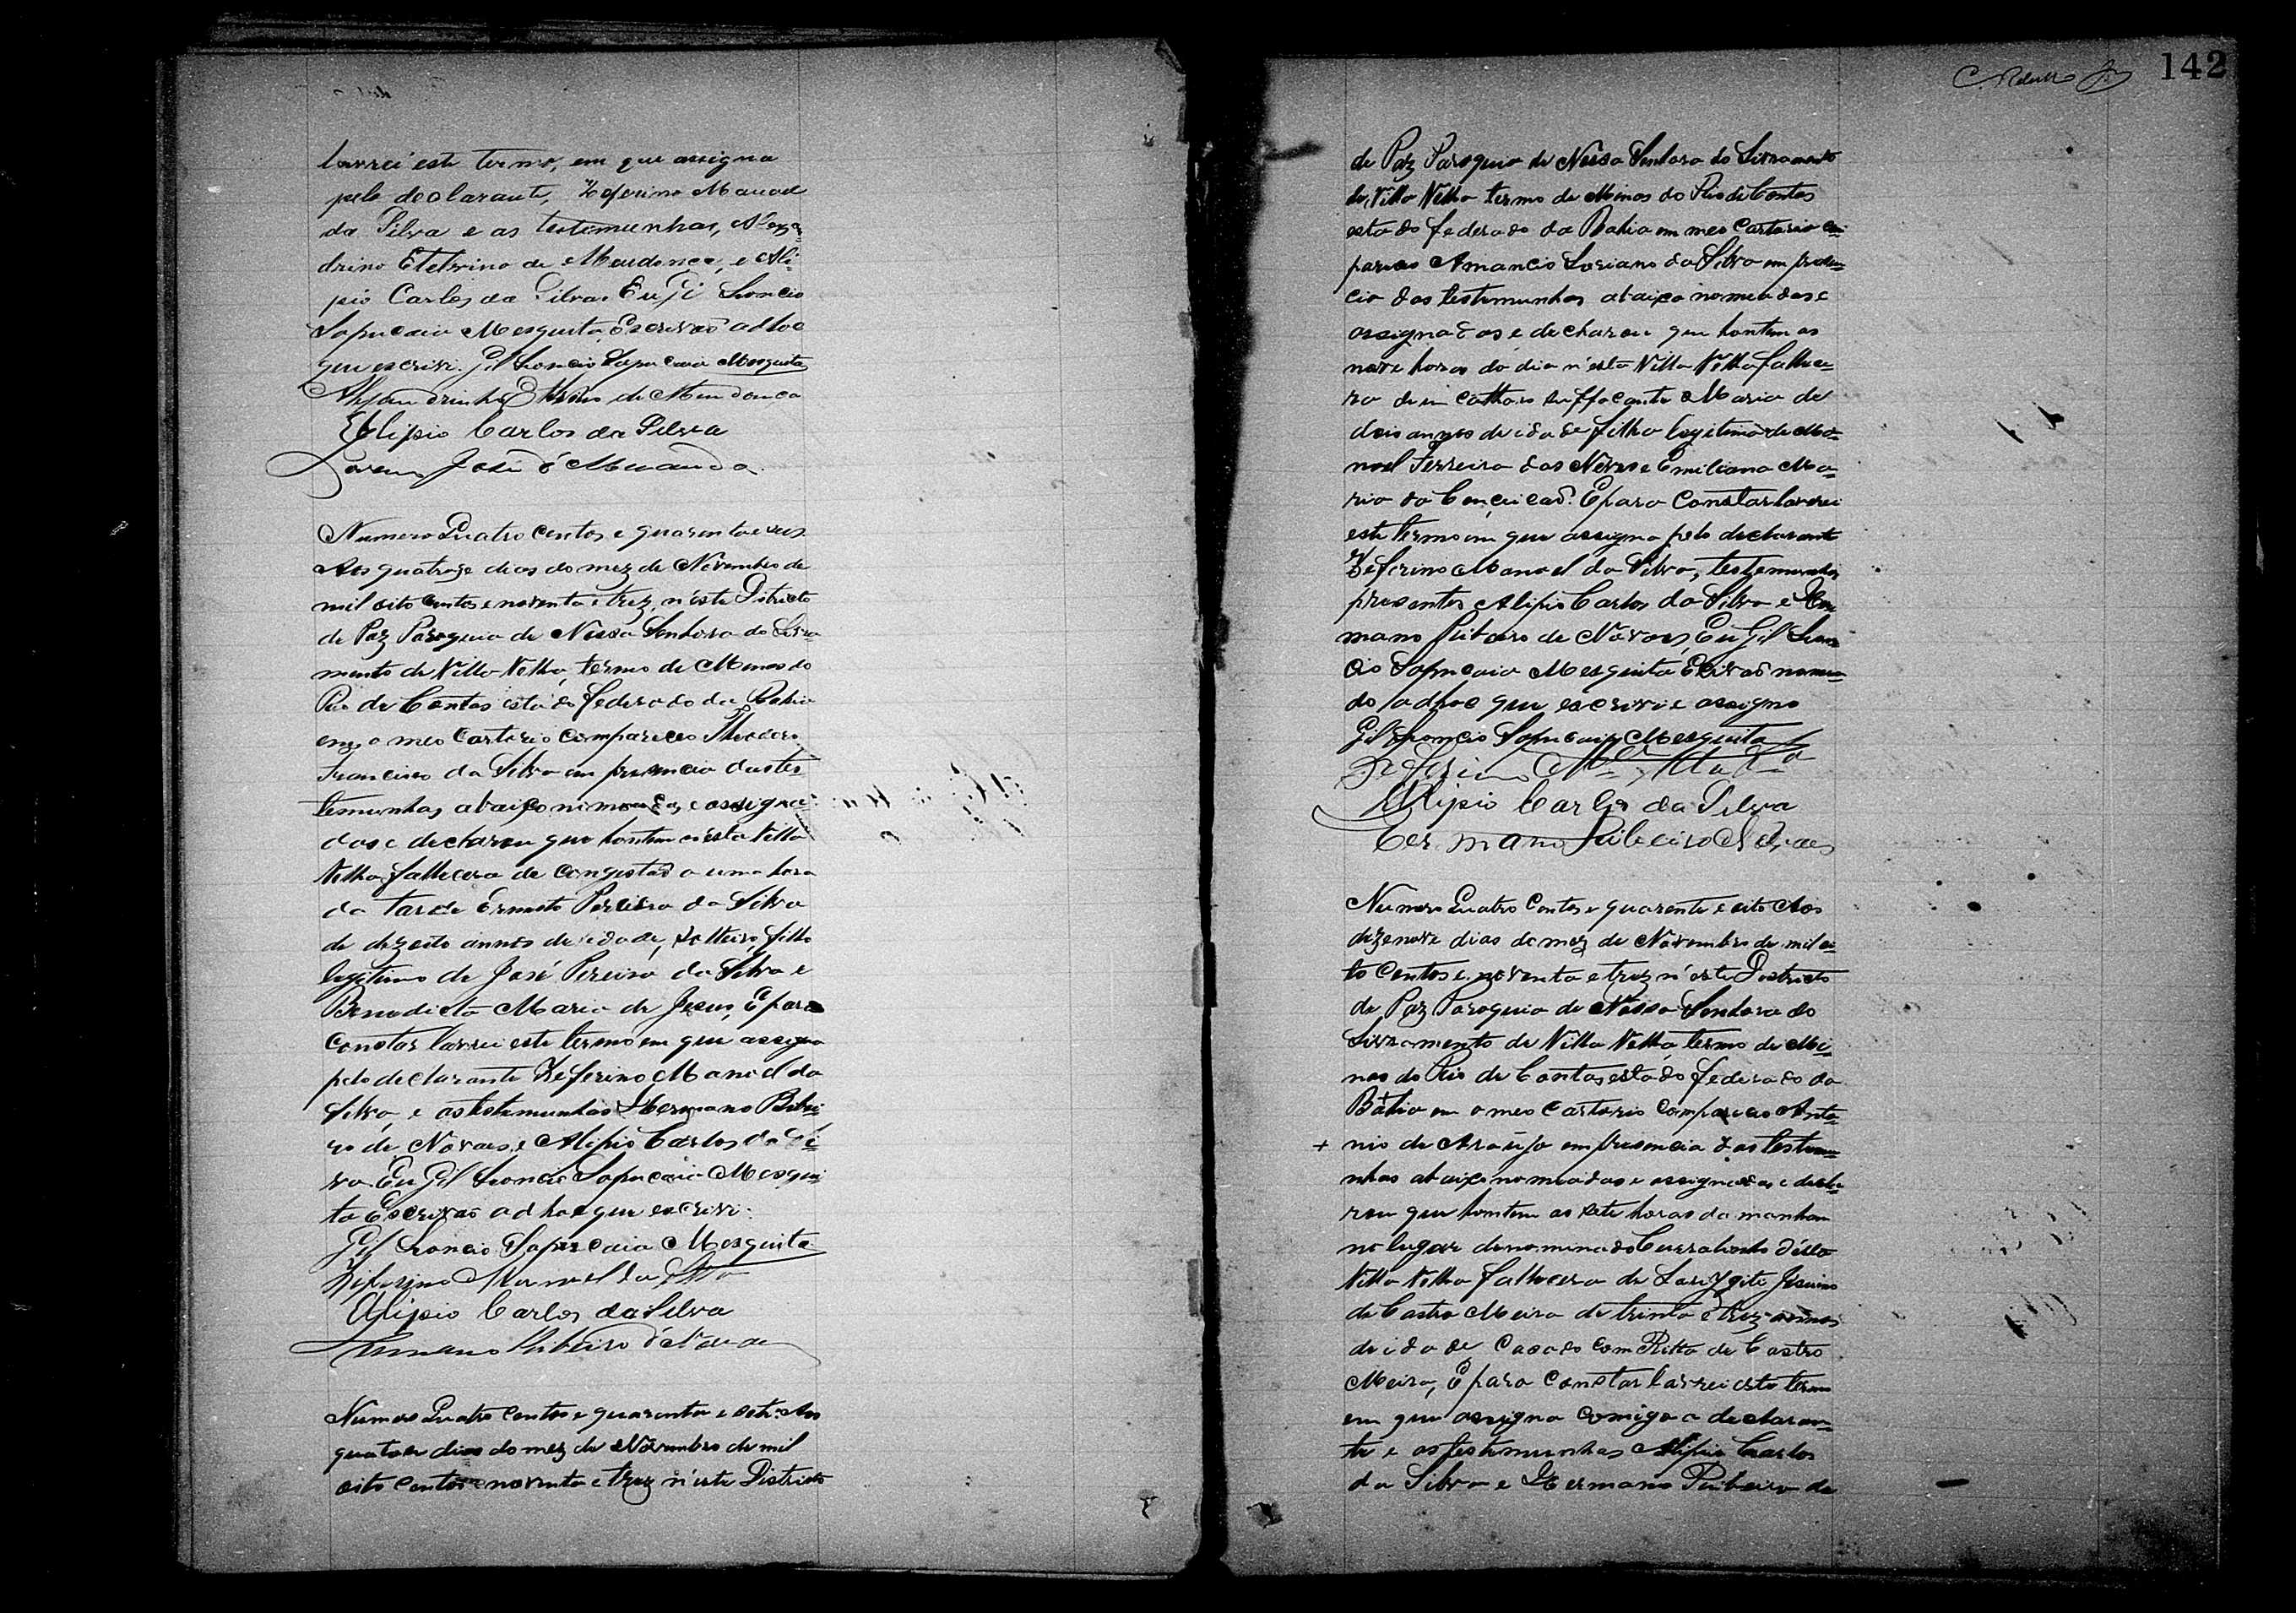 142
lavrei este termo, em que assigna
pelo declarante, Zeferino Manoel
da Silva e as testemunhas, Alexan-
drino Etelvino de Mendonça, e Ali-
pio Carlos da Silva. Eu Gil Leoncio
Sapucaia Mesquita, Escrivão adhoc
que escrivi. Gil Leoncio Sapucaia Mesquita
de Mendonca
Alipio Carlos da Silva
José d' Miranda
Numero Quatro centos e quarenta e seis
Aos quatroze dias do mez de Novembro de
mil oito centos e noventa e trez, n'este Districto
de Paz Paroquia de Nossa Senhora do Livra
mento de Villa Velha, termo de Minas do
Rio de Contas estado federado da Bahia
em o meo Cartorio compareceo Theodoro
Francisco da Silva em presencia das tes
temunhas abaixo nomeadas e assigna-
das e declarou que hontem n'esta Villa
Velha fallecera de congestão a uma hora
da tarde Ernesto Pereira da Silva
de dezoito annos de idade, solteiro filho
legitimo de José Pereira da Silva e
Benedicta Maria de Jesus, E para
constar lavrei este termo em que assigna
pelo declarante Zeferino Manoel da
Silva, e as testemunhas Hermano Ribei-
ro de Novaes, e Alipio Carlos da Sil-
va Eu Gil Leoncio Sapucaia Mesqui-
ta Escrivão adhoc que escrivi.
Gil Leoncio Sapucaia Mesquita
Zeferino Manoel da Silva
Alipio Carlos da Silva
Hermano Ribeiro d'Novaes
Numero Quatro centos e quarenta e sete. Aos
quatorze dias do mez de Novembro de mil
oito centos e noventa e trez n'este Districto
de Paz Paroquia de Nossa Senhora do Livramento
de Villa Velha termo de Minas do Rio de Contas
estado federado da Bahia em meo Cartorio com-
pareceo Amancio Soriano da Silva em presen-
cia das testemunhas abaixo nomeadas e
assignadas e declarou que hontem as
nove horas do dia n'esta Villa Velha fallece-
ra de um catharo suffocante Maria de
dois annos de idade filha legitima de Ma-
noel Ferreira das Neves e Emiliana Ma-
ria da Conceicão. E para constar lavrei
este termo em que assigna pelo declarante
Zeferino Manoel da Silva, testemunhas
presentes Alipio Carlos da Silva e Her
mano Ribeiro de Novaes, Eu Gil Leon
cio Sapucaia Mesquita Escrivão nomea
do adhoc que escrivi e assigno
Gil Leoncio Sapucaia Mesquita
Zeferino Mel. da Silva
Alipio Carlos da Silva
Hermano Ribeiro Novaes
Numero Quatro Centos e quarenta e oito Aos
dezenove dias do mez de Novembro de mil oi-
to centos e noventa e trez n'este Destricto
de Paz Paroquia de Nossa Senhora do
Livramento de Villa Velha termo de Mi-
nas do Rio de Contas estado federado da
Bahia em o meo Cartorio compareceo Anto-
+ nio de Araujo em presencia das testemu-
nhas abaixo nomeadas e assignadas e decla-
rou que hontem as sete horas da manham
no lugar denominado Curralinho d'esta
Villa Velha fallecera de Larizgite Jesuino
de Castro Meira de trinta e trez annos
de idade Casado com Ritta de Castro
Meira, E para constar lavrei este termo
em que assigna comigo o declaran-
te e as testemunhas Alipio Carlos
da Silva e Hermano Ribeiro de